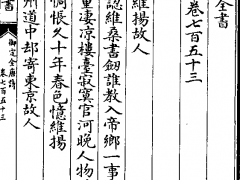 全書
卷七百五十三
維揚故人
認維桑書劒誰教入帝鄉一事
重淒凉樓臺寂寞官河晚人物
惆悵久十年春色憶維揚
州道中却寄東京故人
書
御定全唐詩
卷七百五十三